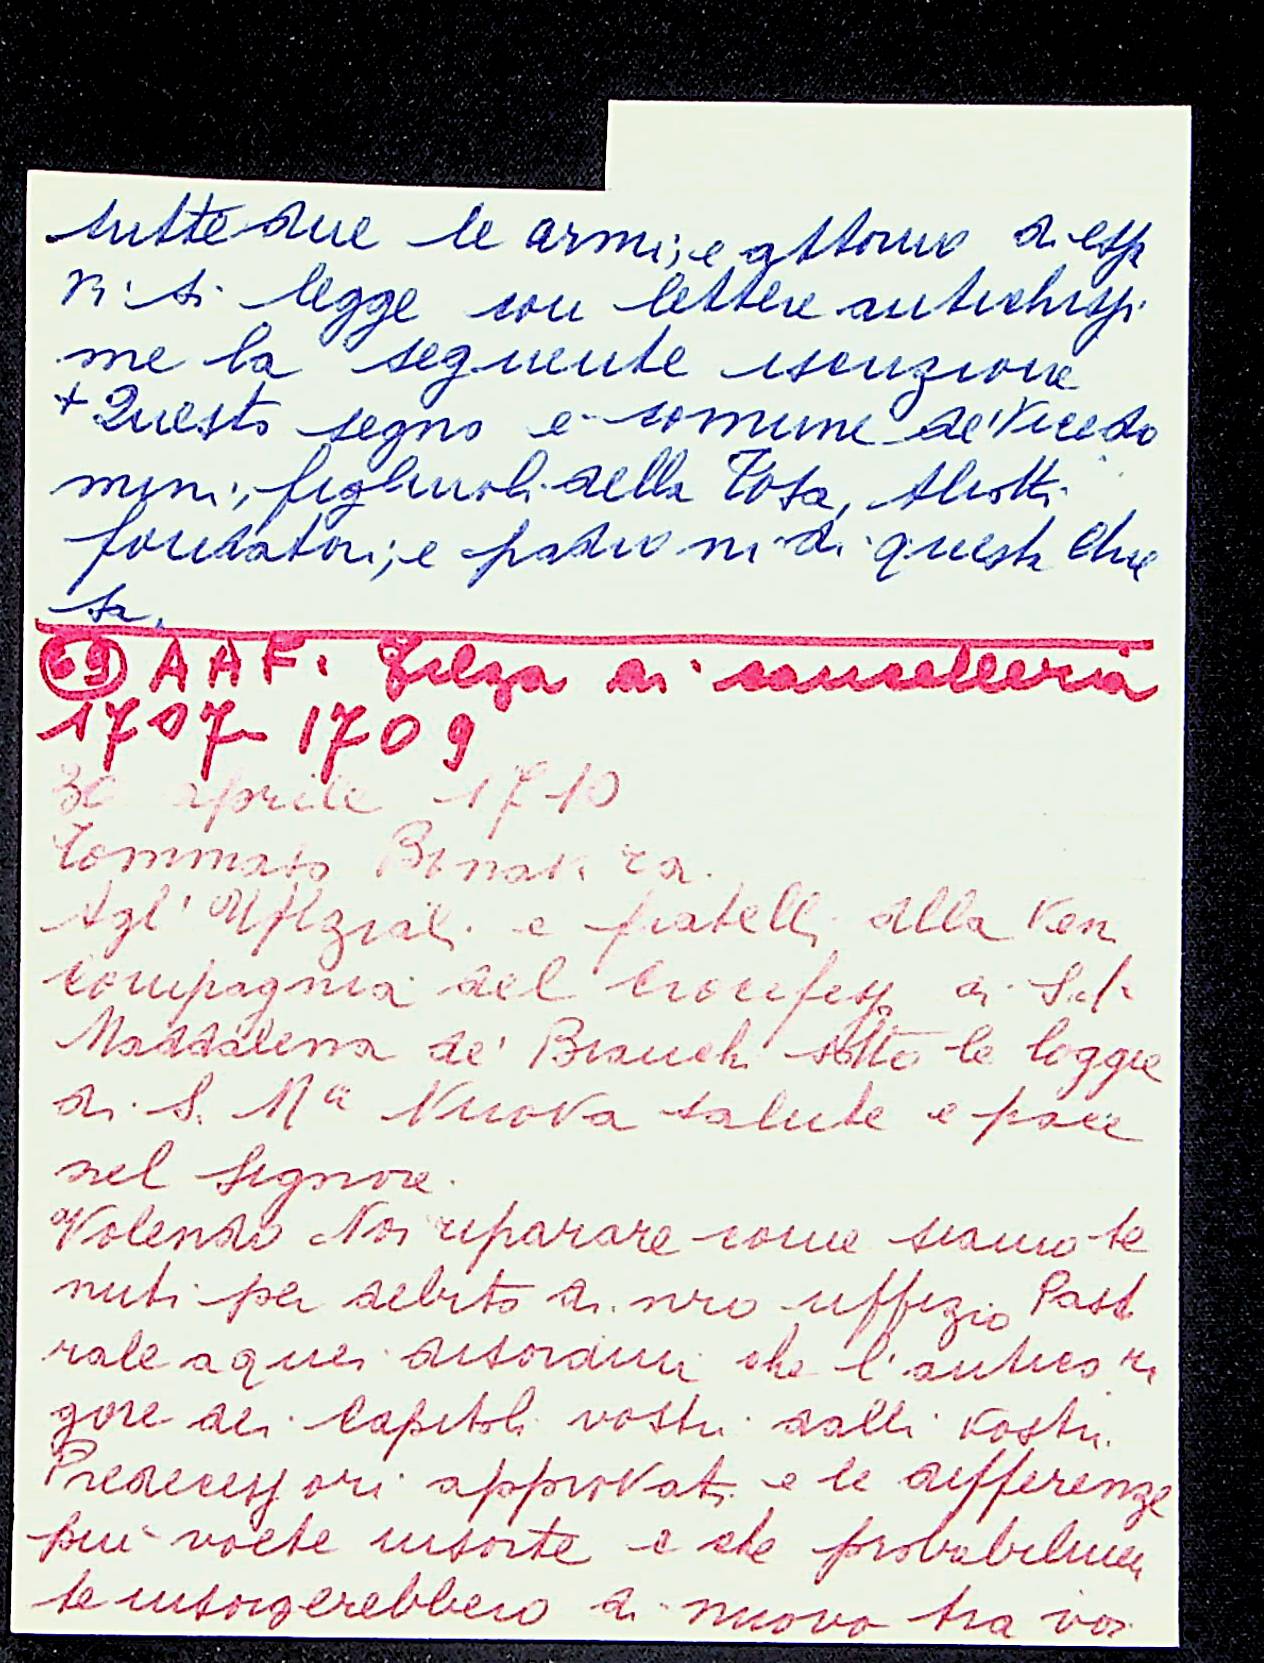 tutte due le armi; e attorno di essa
vi si legge con lettere antichissi
me la seguente iscrizione
+ Questo segno e comune de' Vicedo
mini, figliuoli della Tosa, Aliotti
fondatori; e padroni di questa Chie
sa.
69 A A F. Filza di cancelleria
1707-1709
30 aprile 1710
Tommaso Bonav. ra.
Agl' Uffiziali e fratelli della Ven
Compagnia del Crocifisso di S.
Maddalena de' Bianchi sotto le loggie
di S. Mª Nuova salute e pace
nel Signore.
Volendo Noi riparare come siamo te
nuti per debito di nro uffizio Past
rale a quei disordini che l'antico ri
gore dei Capitoli vostri dalli vostri
Predecessori approvati e le differenze
piu volte insorte e che probabilmen
te insorgerebbero di nuovo tra voi